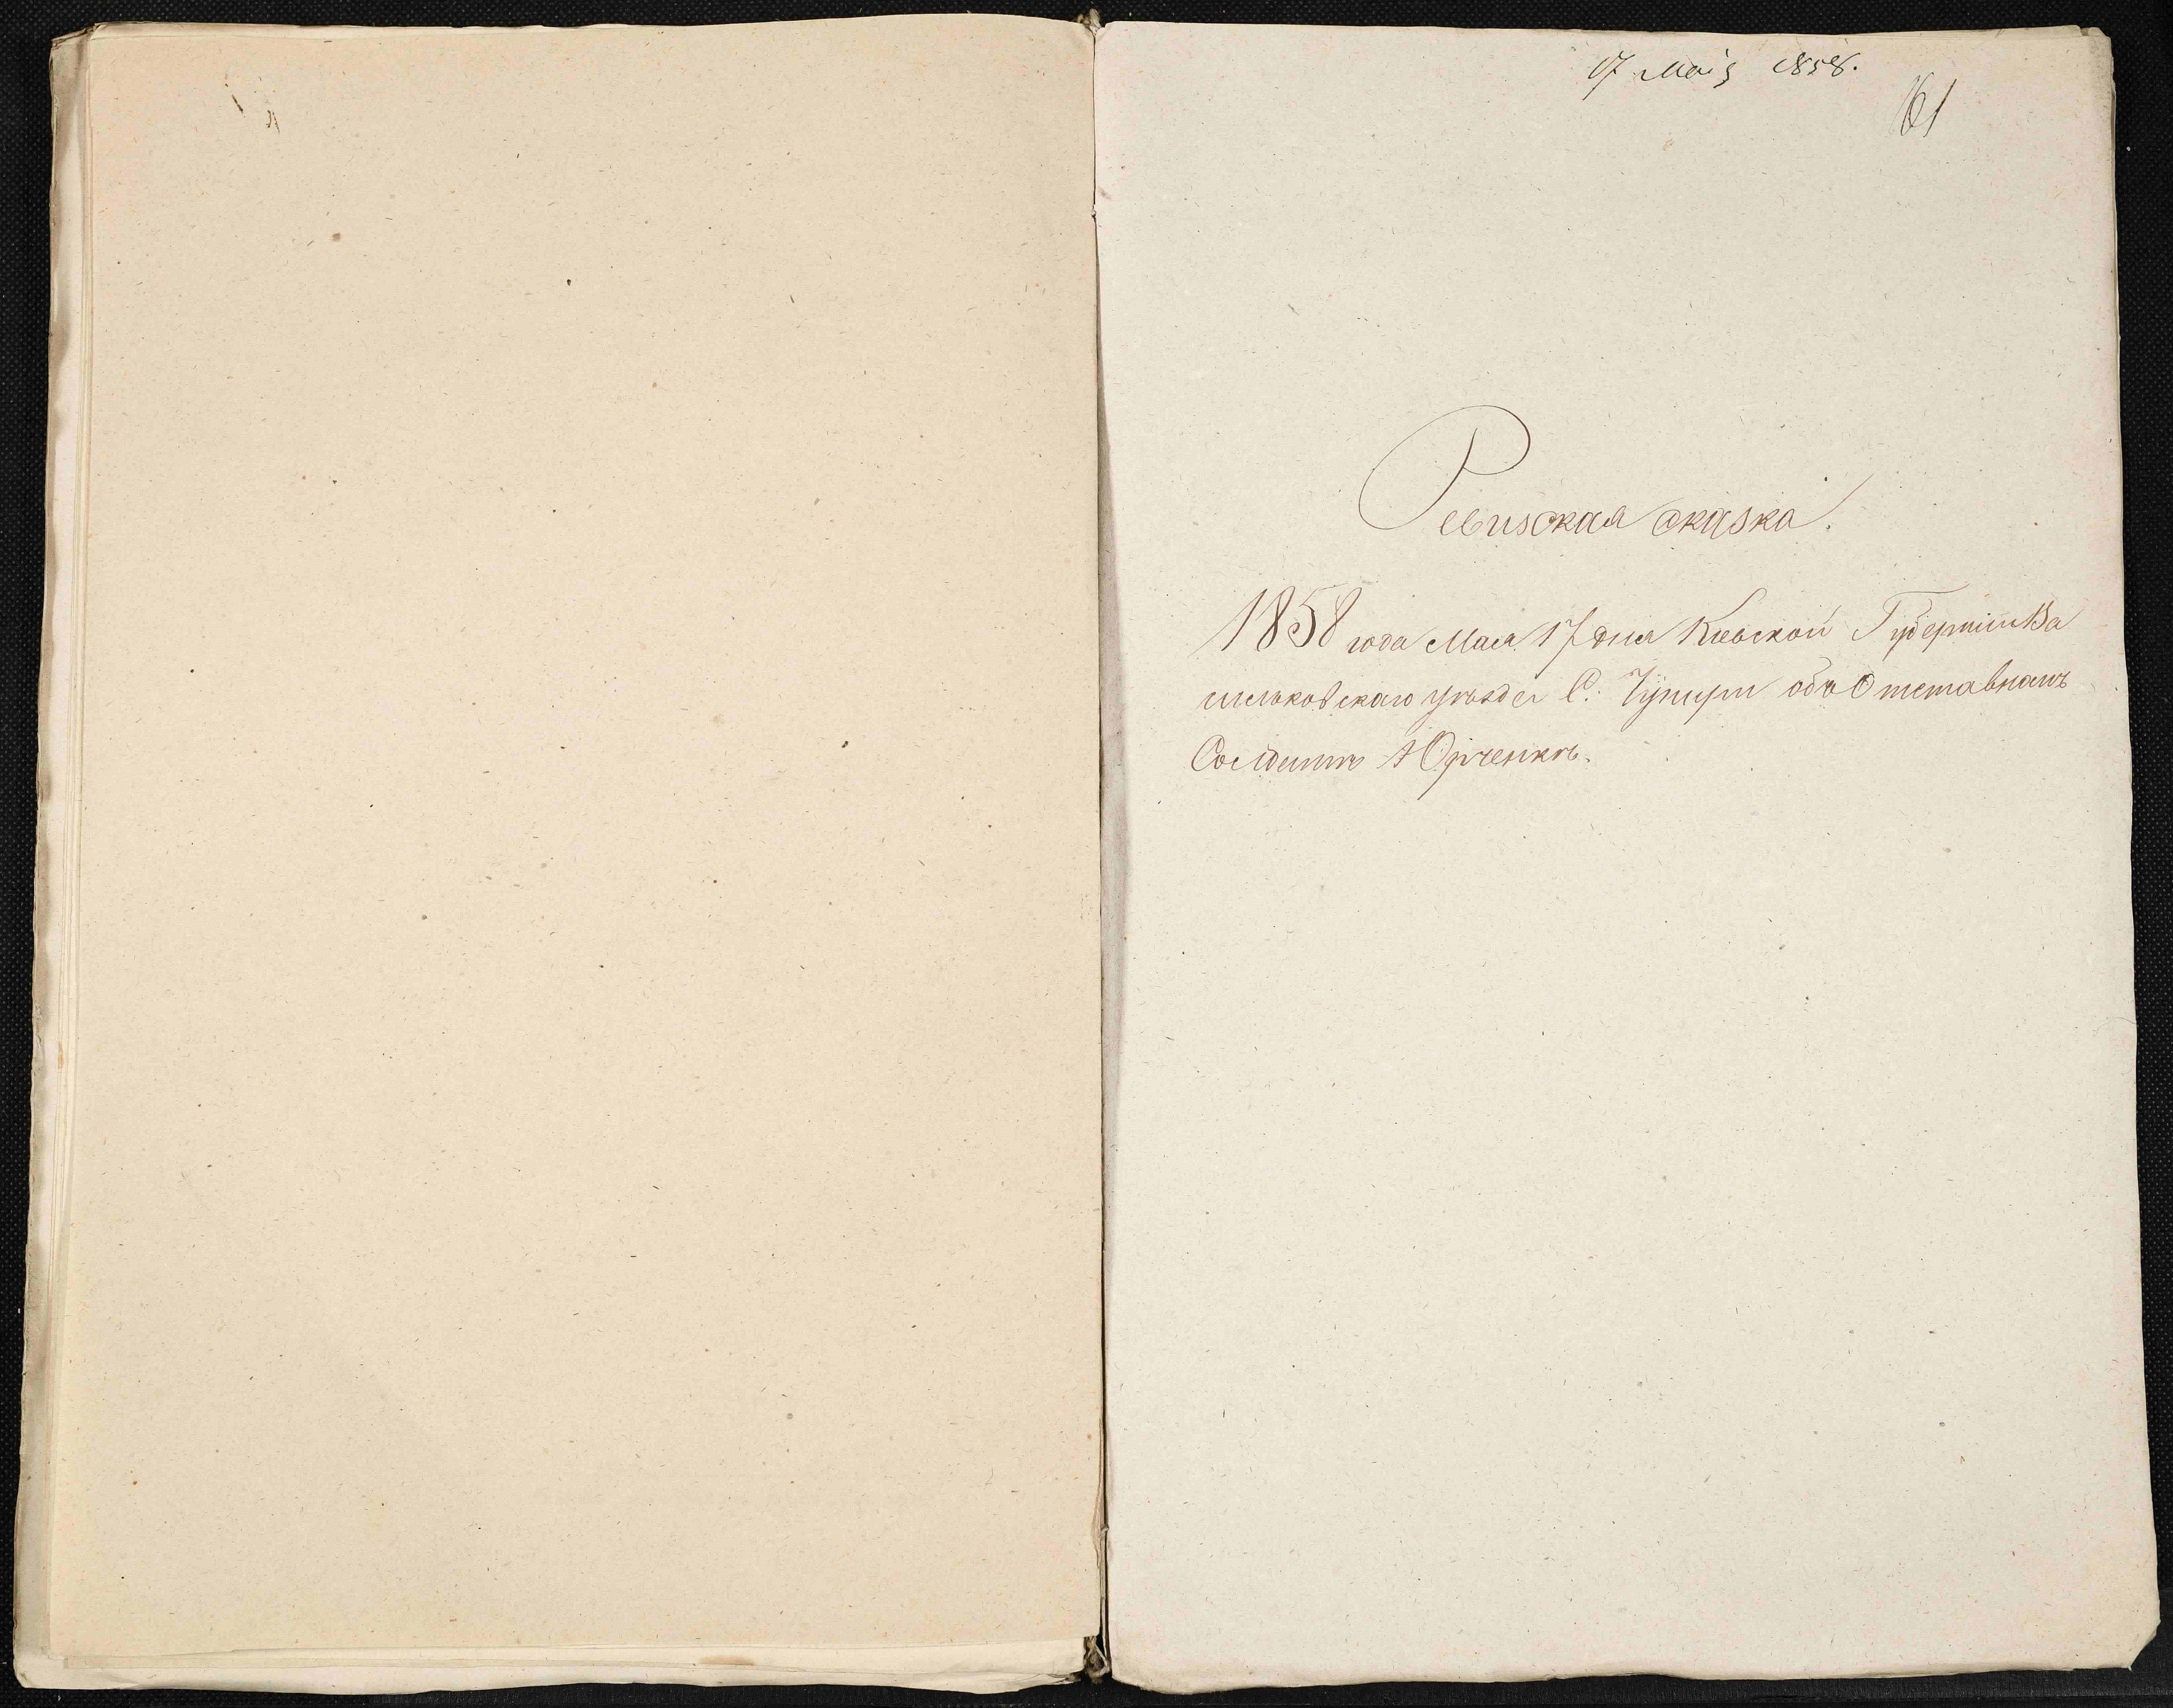 17 Маія 1858.
161
Ревизская сказка.
1858 года Мая 17 дня Киевской Губерніи Ва
сильковскаго уѣзда С. Чупиры объ Отставномъ
Солдатѣ Юрченкѣ.